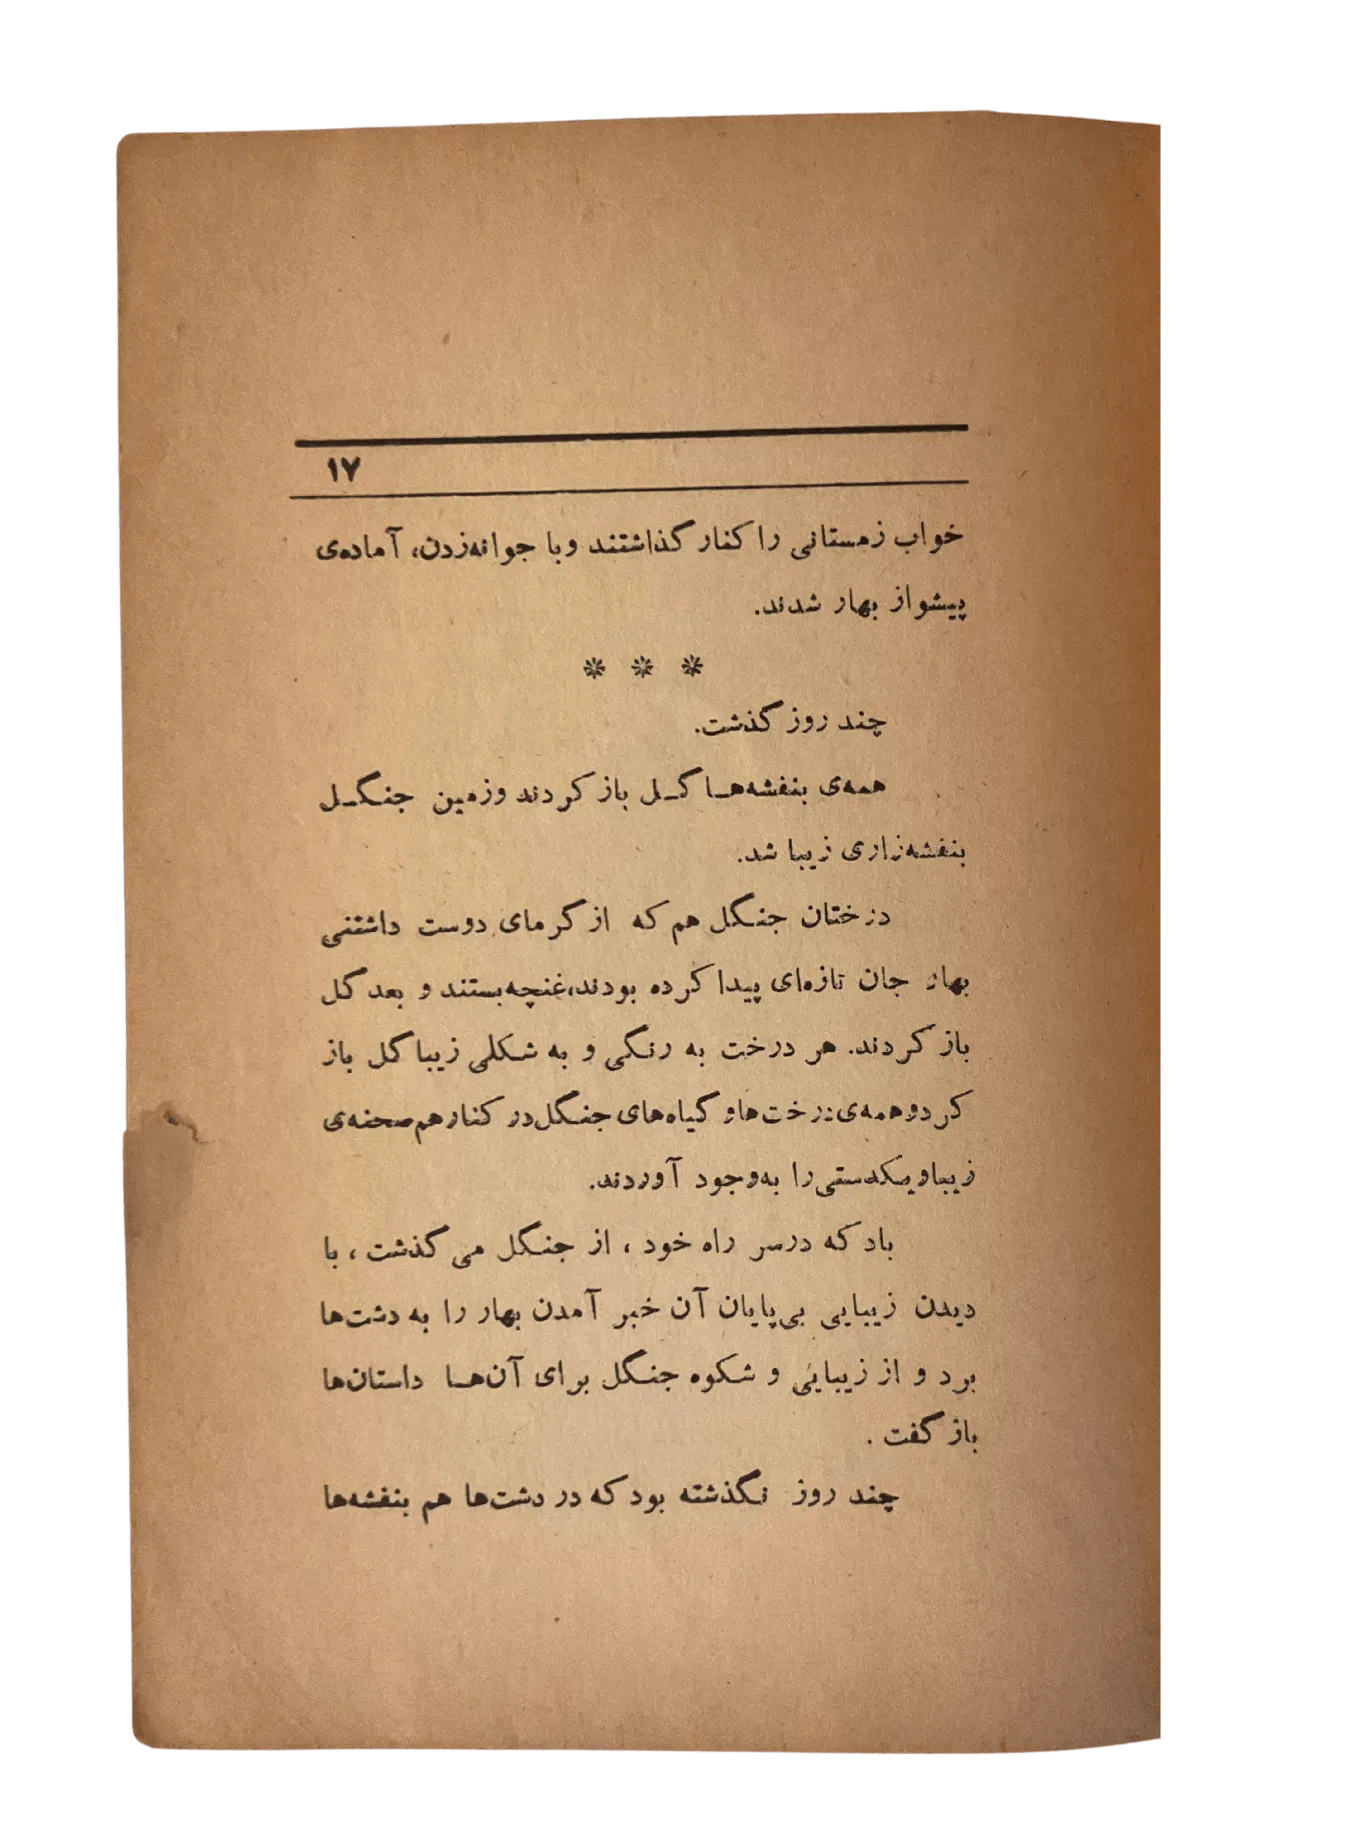 ۱۷
خواب زمستانی را کنار گذاشتند و با جوانه‌زدن، آماده‌ی
پیشواز بهار شدند.
* * *
چند روز گذشت.
همه‌ی بنفشه‌هـا گـل باز کردند وزمین جنگـل
بنفشه‌زاری زیبا شد.
درختان جنگل هم که از گرمای دوست داشتنی
بهار جان تازه‌ای پیدا کرده بودند،غنچه‌بستند و بعد گل
باز کردند. هر درخت به رنگی و به شکلی زیبا گل باز
کرد و همه‌ی درخت‌ها و گیاه‌های جنگل در کنار هم صحنه‌ی
زیبا و یکدستی را به‌وجود آوردند.
باد که درسر راه خود ، از جنگل می گذشت ، با
دیدن زیبایی بی‌پایان آن خبر آمدن بهار را به دشت‌ها
برد و از زیبایی و شکوه جنگل برای آن‌هـا داستان‌ها
باز گفت .
چند روز نگذشته بود که در دشت‌ها هم بنفشه‌ها